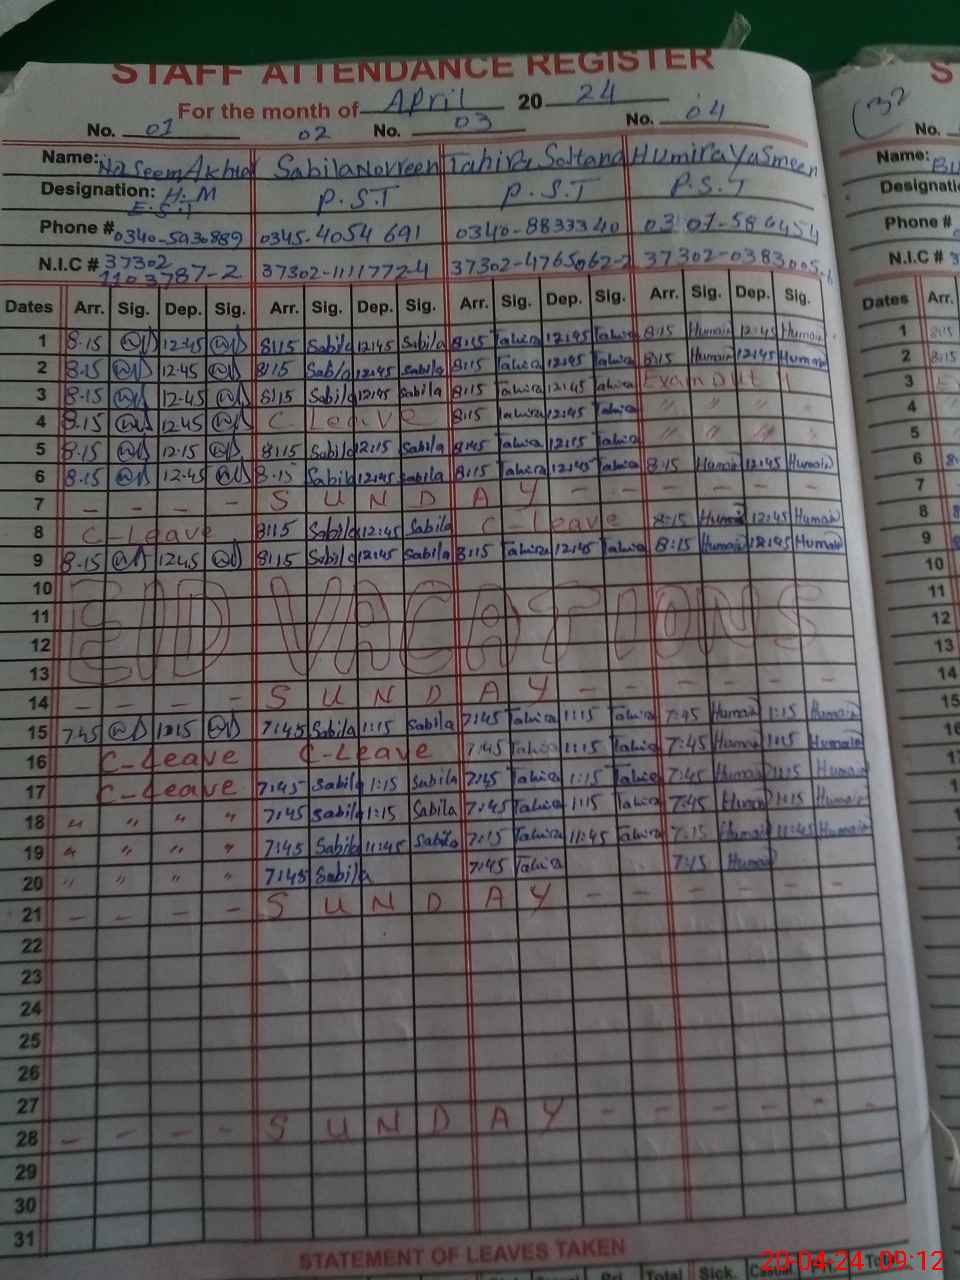 STAFF ATTENDANCE REGISTER
For the month of April 20 24
No. 01 02 No. 03 No. 04
Name: Naseem Akhtar Sabila Noureen Tahira Soltana Humira Yasmeen
Designation: H.M P.S.T P.S.T P.S.T
E.S.T
Phone # 0340-5930889 0345-4054691 0340-8833340 0307-586454
N.I.C # 37302
1103787-2 37302-1111772-4 37302-4765062-2 37302-0383005-6
Dates Arr. Sig. Dep. Sig. Arr. Sig. Dep. Sig. Arr. Sig. Dep. Sig. Arr. Sig. Dep. Sig.
1 8.15 12.45 8:15 Sabila 12:45 Sabila 8:15 Tahira 12:45 Tahira 8:15 Humair 12:45 Humair
2 8.15 12.45 8:15 Sabila 12:45 Sabila 8:15 Tahira 12:45 Tahira 8:15 Humair 12:45 Humair
3 8.15 12.45 8:15 Sabila 12:45 Sabila 8:15 Tahira 12:45 Tahira Exam Dut
4 8.15 12.45 C-Leave 8:15 Tahira 12:45 Tahira " " " "
5 8.15 12.15 8:15 Sabila 12:15 Sabila 8:45 Tahira 12:15 Tahira " " " "
6 8.15 12.45 8:15 Sabila 12:45 Sabila 8:15 Tahira 12:45 Tahira 8:15 Humair 12:45 Humair
7 - - - - S U N D A Y - - - - - -
8 C-Leave 8:15 Sabila 12:45 Sabila C-Leave 8:15 Humair 12:45 Humair
9 8.15 12.45 8:15 Sabila 12:45 Sabila 8:15 Tahira 12:45 Tahira 8:15 Humair 12:45 Humair
10
11 EID VACATIONS
12
13
14 - - - - S U N D A Y - - - - - -
15 7.45 1:15 7:45 Sabila 1:15 Sabila 7:45 Tahira 1:15 Tahira 7:45 Humair 1:15 Humair
16 C-Leave C-Leave 7:45 Tahira 1:15 Tahira 7:45 Humair 1:15 Humair
17 C-Leave 7:45 Sabila 1:15 Sabila 7:45 Tahira 1:15 Tahira 7:45 Humair 1:15 Humair
18 " " " " 7:45 Sabila 1:15 Sabila 7:45 Tahira 1:15 Tahira 7:45 Humair 1:15 Humair
19 " " " " 7:45 Sabila 11:45 Sabila 7:15 Tahira 11:45 Tahira 7:15 Humair 11:45 Humair
20 " " " " 7:45 Sabila 7:45 Tahira 7:15 Humair
21 - - - - S U N D A Y - - - - - -
22
23
24
25
26
27
28 - - - - S U N D A Y - - - - - -
29
30
31
STATEMENT OF LEAVES TAKEN
Total Sick. Casual
(32
No.
Name:
Designati
Phone #
N.I.C #
Dates Arr.
1
2
3
4
5
6
7
8
9
10
11
12
13
14
15
20-04-24 09:12